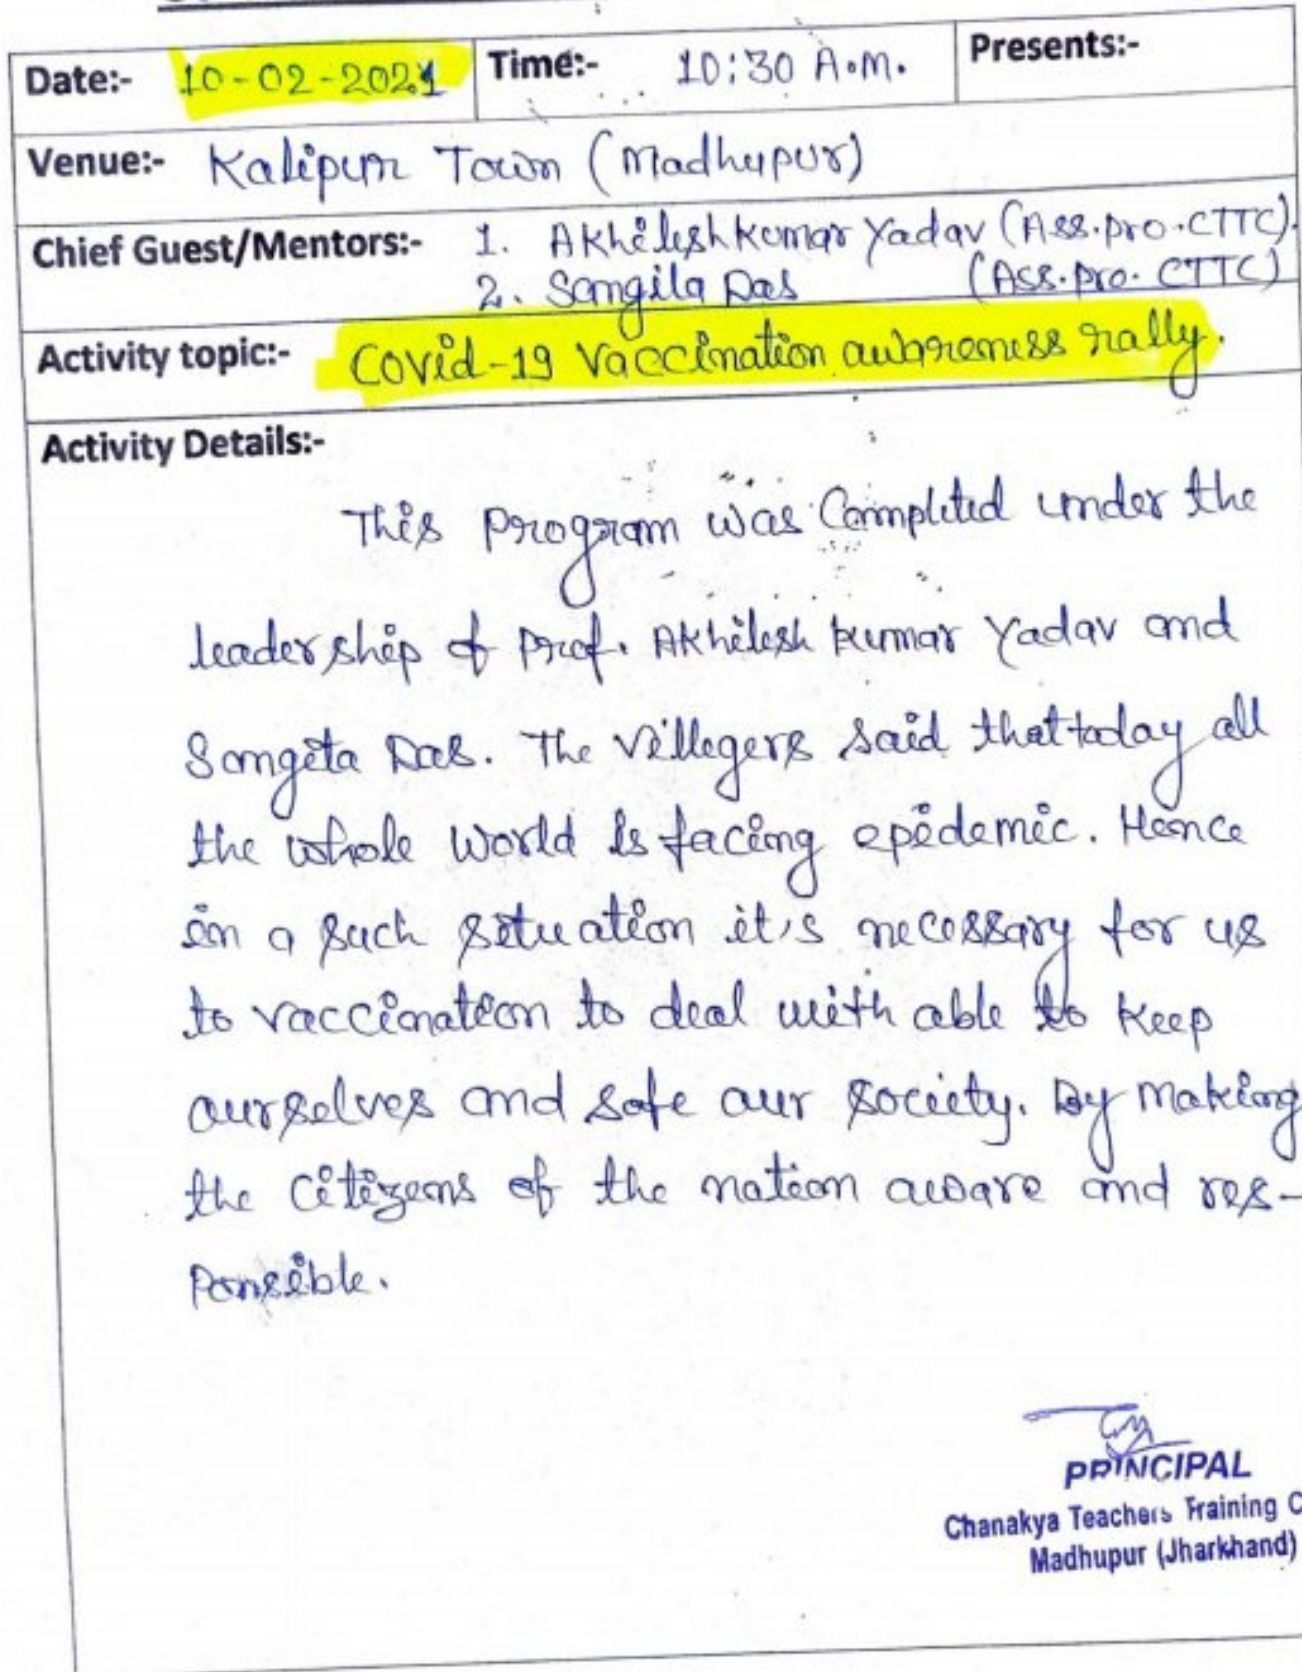 Date:- 10-02-2021 Time:- 10:30 A.M. Presents:-
Venue:- Kalipur Town (Madhupur)
Chief Guest/Mentors:- 1. Akhilesh kumar Yadav (Ass.pro.CTTC).
2. Sangita Das (Ass.pro. CTTC)
Activity topic:- Covid-19 Vaccination awareness rally.
Activity Details:-
This Program was Completed under the
leadership of Prof. Akhilesh kumar Yadav and
Sangita Das. The villegers said that today all
the whole world is facing epidemic. Hence
in a such situation it's necessary for us
to vaccination to deal with able to keep
ourselves and safe our society. By making
the citizens of the nation aware and res-
ponsible.
PRINCIPAL
Chanakya Teachers Training C
Madhupur (Jharkhand)